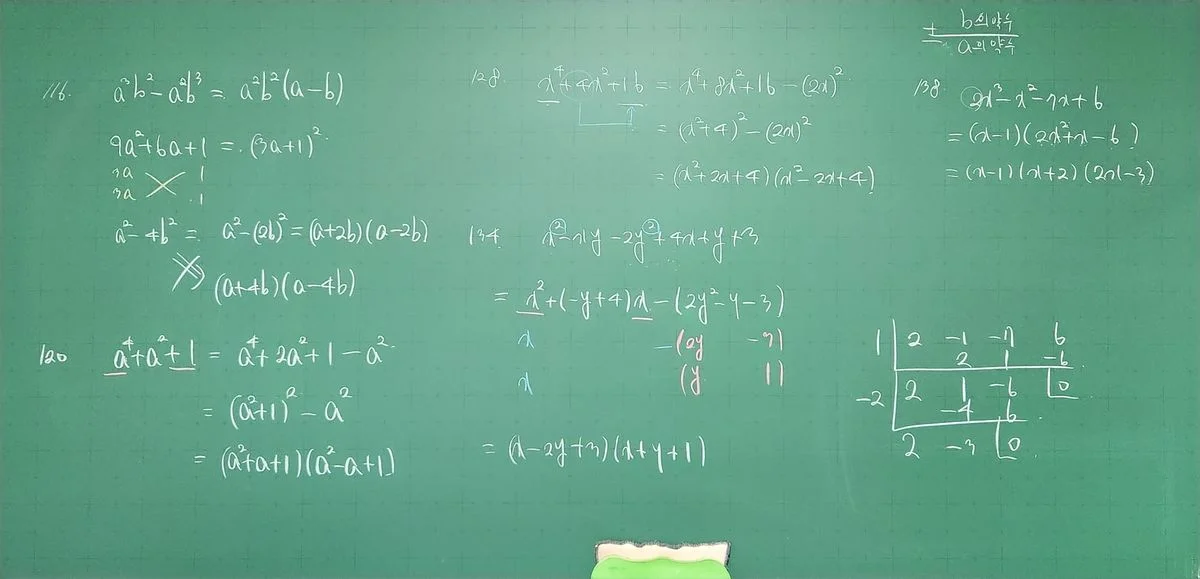 116. a³b² - a²b³ = a²b²(a-b)
9a²+6a+1 = (3a+1)²
3a 1
3a 1
a² - 4b² = a² - (2b)² = (a+2b)(a-2b)
(a+4b)(a-4b)
120 a⁴+a²+1 = a⁴+2a²+1-a²
= (a²+1)² - a²
= (a²+a+1)(a²-a+1)
128. x⁴+4x²+16 = x⁴+8x²+16-(2x)²
= (x²+4)² - (2x)²
= (x²+2x+4)(x²-2x+4)
134. x²-xy-2y²+4x+y+3
= x²+(-y+4)x-(2y²-y-3)
x -(2y -3)
x (y 1)
= (x-2y+3)(x+y+1)
± b의약수
a의약수
138 2x³-x²-7x+6
= (x-1)(2x²+x-6)
= (x-1)(x+2)(2x-3)
1 2 -1 -7 6
2 1 -6
-2 2 1 -6 0
-4 6
2 -3 0